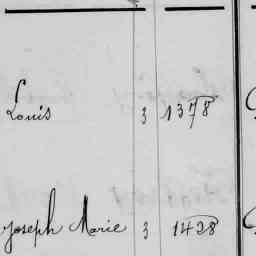 Louis 3 1378
Joseph Marie 3 1428